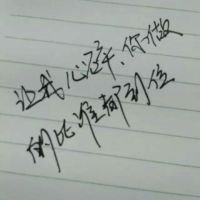 让我心碎、你做
的比谁都到位